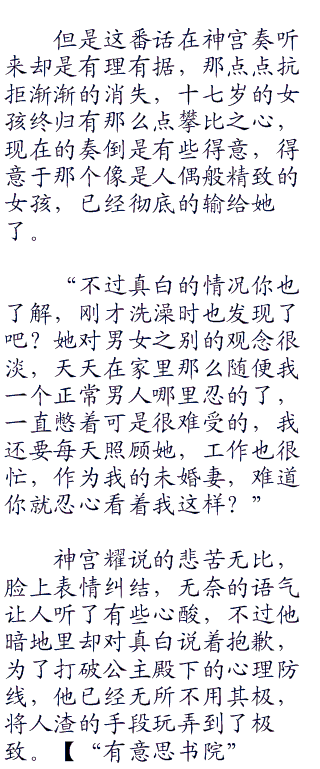 但是这番话在神宫奏听
来却是有理有据，那点点抗
拒渐渐的消失，十七岁的女
孩终归有那么点攀比之心，
现在的奏倒是有些得意，得
意于那个像是人偶般精致的
女孩，已经彻底的输给她
了。
“不过真白的情况你也
了解，刚才洗澡时也发现了
吧？她对男女之别的观念很
淡，天天在家里那么随便我
一个正常男人哪里忍的了，
一直憋着可是很难受的，我
还要每天照顾她，工作也很
忙，作为我的未婚妻，难道
你就忍心看着我这样？”
神宫耀说的悲苦无比，
脸上表情纠结，无奈的语气
让人听了有些心酸，不过他
暗地里却对真白说着抱歉，
为了打破公主殿下的心理防
线，他已经无所不用其极，
将人渣的手段玩弄到了极
致。【“有意思书院”